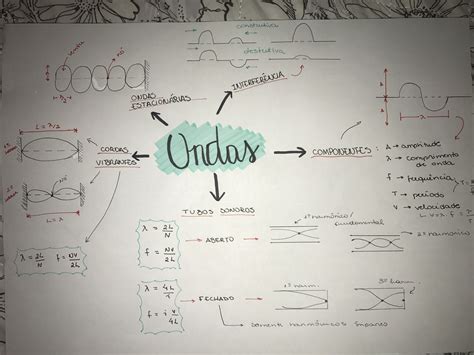 construtiva
destrutiva
INTERFERÊNCIA
ventre
nó
ONDAS
ESTACIONÁRIAS
Ondas
CORDAS
VIBRANTES
L = λ/2
L = λ
λ = 2L/N f = NV/2L
COMPONENTES:
A
A
λ
A → amplitude
λ → comprimento
de onda
f → frequência
T → período
V → velocidade
TUBOS SONOROS
λ = 2L/N
f = NV/2L
ABERTO
1º harmônico/
fundamental
2º harmônico
λ = 4L/i
f = i V/4L
FECHADO
1º harm.
3º harm.
somente harmônicos ímpares